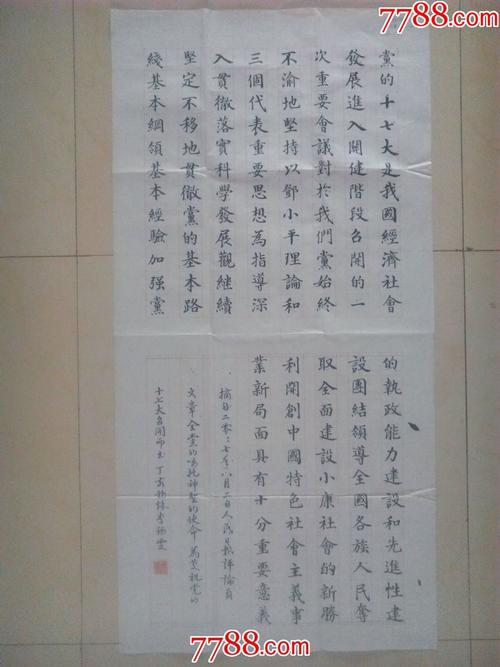 7788.com
黨的十七大是我國經濟社會
發展進入開健階段召開的一
次重要會議對於我們黨始終
不渝地堅持以鄧小平理論和
三個代表重要思想為指導深
入貫徹落實科學發展觀継續
堅定不移地貫徹黨的基本路
綫基本綱領基本經驗加强黨
的執政能力建設和先進性建
設團結領導全國各族人民奪
取全面建設小康社會的新勝
利開創中國特色社會主義事
業新局面具有十分重要意義
摘自二零零七年八月二日人民日報評論員
文章全黨的重托神聖的使命 為慶祝黨的
十七大召開而書 丁亥初秋李
7788.com